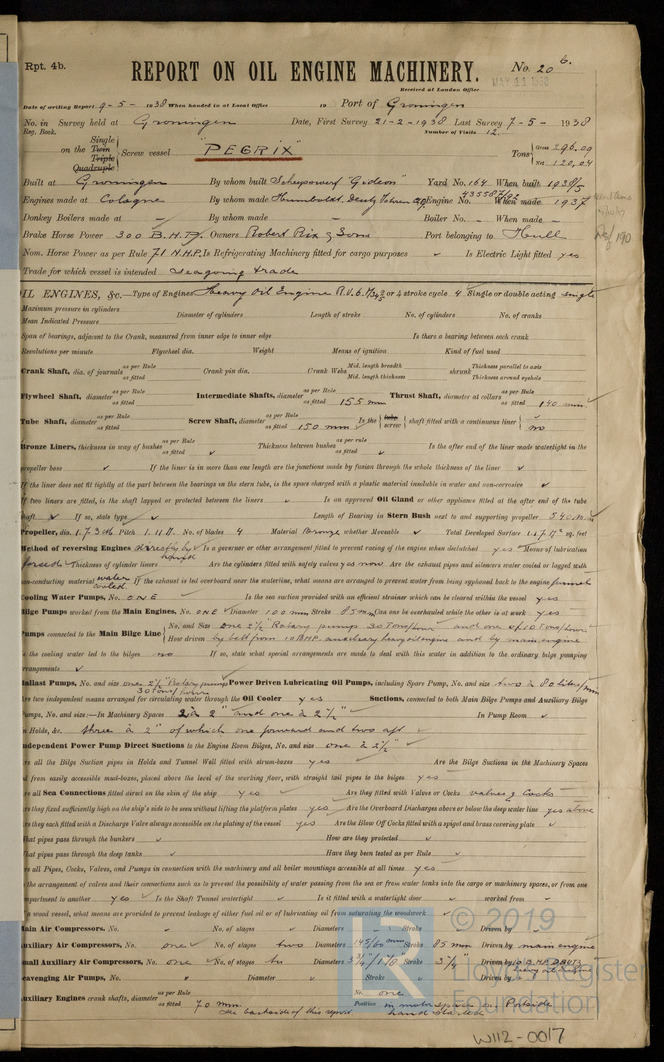 Rpt. 4b.
REPORT ON OIL ENGINE MACHINERY.
No. 20 6.
Received at London Office
MAY 11 1938
Date of writing Report 9-5-1938 When handed in at Local Office 19 Port of Groningen
No. in Survey held at Groningen Date, First Survey 21-2-1938 Last Survey 7-5-1938
Reg. Book. Number of Visits 12
Single
on the Twin Screw vessel "PEGRIX" Tons Gross 296.09
Triple Net 120.04
Quadruple
Built at Groningen By whom built Scheepswerf "Gideon" Yard No. 164 When built 1938/5
Engines made at Cologne By whom made Humboldt Deutz Engine No. When made 1937
Donkey Boilers made at - By whom made - Boiler No. - When made -
Brake Horse Power 300 B.H.P. Owners Robert Rix & Sons Port belonging to Hull
Nom. Horse Power as per Rule 71 N.H.P. Is Refrigerating Machinery fitted for cargo purposes ✓ Is Electric Light fitted yes
Trade for which vessel is intended Seagoing trade
OIL ENGINES, &c.—Type of Engines Heavy Oil Engine 2 or 4 stroke cycle 4 Single or double acting single
Maximum pressure in cylinders Diameter of cylinders Length of stroke No. of cylinders No. of cranks
Mean Indicated Pressure
Span of bearings, adjacent to the Crank, measured from inner edge to inner edge Is there a bearing between each crank
Revolutions per minute Flywheel dia. Weight Means of ignition Kind of fuel used
Crank Shaft, dia. of journals as per Rule as fitted Crank pin dia. Crank Webs Mid. length breadth Mid. length thickness shrunk Thickness parallel to axis Thickness around eyehole
Flywheel Shaft, diameter as per Rule as fitted Intermediate Shafts, diameter as per Rule as fitted 155 mm Thrust Shaft, diameter at collars as per Rule as fitted 140 mm
Tube Shaft, diameter as per Rule as fitted Screw Shaft, diameter as per Rule as fitted 150 mm Is the tube screw shaft fitted with a continuous liner no
Bronze Liners, thickness in way of bushes as per Rule as fitted ✓ Thickness between bushes as per rule as fitted ✓ Is the after end of the liner made watertight in the
propeller boss ✓ If the liner is in more than one length are the junctions made by fusion through the whole thickness of the liner ✓
If the liner does not fit tightly at the part between the bearings in the stern tube, is the space charged with a plastic material insoluble in water and non-corrosive ✓
If two liners are fitted, is the shaft lapped or protected between the liners ✓ Is an approved Oil Gland or other appliance fitted at the after end of the tube
shaft If so, state type ✓ Length of Bearing in Stern Bush next to and supporting propeller 540 mm
Propeller, dia. Pitch No. of blades 4 Material Bronze whether Moveable ✓ Total Developed Surface sq. feet
Method of reversing Engines direct by hand Is a governor or other arrangement fitted to prevent racing of the engine when declutched yes Means of lubrication
forced Thickness of cylinder liners Are the cylinders fitted with safety valves yes Are the exhaust pipes and silencers water cooled or lagged with
non-conducting material water cooled If the exhaust is led overboard near the waterline, what means are arranged to prevent water from being syphoned back to the engine funnel
Cooling Water Pumps, No. ONE Is the sea suction provided with an efficient strainer which can be cleared within the vessel yes
Bilge Pumps worked from the Main Engines, No. ONE Diameter 100 mm Stroke 85 mm Can one be overhauled while the other is at work yes
Pumps connected to the Main Bilge Line No. and Size One 2½" Rotary pumps 30 Tons/hour and one of 10 Tons/hour
How driven by belt from 10 BHP auxiliary heavy oil engine and by main engine
Is the cooling water led to the bilges no If so, state what special arrangements are made to deal with this water in addition to the ordinary bilge pumping
arrangements ✓
Ballast Pumps, No. and size one 2½" Rotary pump 30 tons/hour Power Driven Lubricating Oil Pumps, including Spare Pump, No. and size two à 80 liter/min
Are two independent means arranged for circulating water through the Oil Cooler yes Suctions, connected to both Main Bilge Pumps and Auxiliary Bilge
Pumps, No. and size:—In Machinery Spaces 2 à 2" and one à 2½" In Pump Room ✓
In Holds, &c. three à 2" of which one forward and two aft
Independent Power Pump Direct Suctions to the Engine Room Bilges, No. and size one à 2½"
Are all the Bilge Suction pipes in Holds and Tunnel Well fitted with strum-boxes yes Are the Bilge Suctions in the Machinery Spaces
led from easily accessible mud-boxes, placed above the level of the working floor, with straight tail pipes to the bilges yes
Are all Sea Connections fitted direct on the skin of the ship yes Are they fitted with Valves or Cocks valves & Cocks
Are they fixed sufficiently high on the ship's side to be seen without lifting the platform plates yes Are the Overboard Discharges above or below the deep water line yes above
Are they each fitted with a Discharge Valve always accessible on the plating of the vessel yes Are the Blow Off Cocks fitted with a spigot and brass covering plate ✓
What pipes pass through the bunkers ✓ How are they protected ✓
What pipes pass through the deep tanks ✓ Have they been tested as per Rule ✓
Are all Pipes, Cocks, Valves, and Pumps in connection with the machinery and all boiler mountings accessible at all times yes
Is the arrangement of valves and their connections such as to prevent the possibility of water passing from the sea or from water tanks into the cargo or machinery spaces, or from one
compartment to another yes Is the Shaft Tunnel watertight ✓ Is it fitted with a watertight door ✓ worked from ✓
In a wood vessel, what means are provided to prevent leakage of either fuel oil or of lubricating oil from saturating the woodwork ✓
Main Air Compressors, No. - No. of stages - Diameters - Stroke - Driven by -
Auxiliary Air Compressors, No. one No. of stages two Diameters 145/60 mm Stroke 85 mm Driven by main engine
Small Auxiliary Air Compressors, No. one No. of stages Diameters Stroke 3¼" Driven by 10 B.H.P. DEUTZ heavy oil engine
Scavenging Air Pumps, No. Diameter Stroke Driven by
Auxiliary Engines crank shafts, diameter as per Rule as fitted 70 mm No. one Position in motor space Portside
See backside of this report hand started
© 2019
Lloyd's Register
Foundation
W112-0017